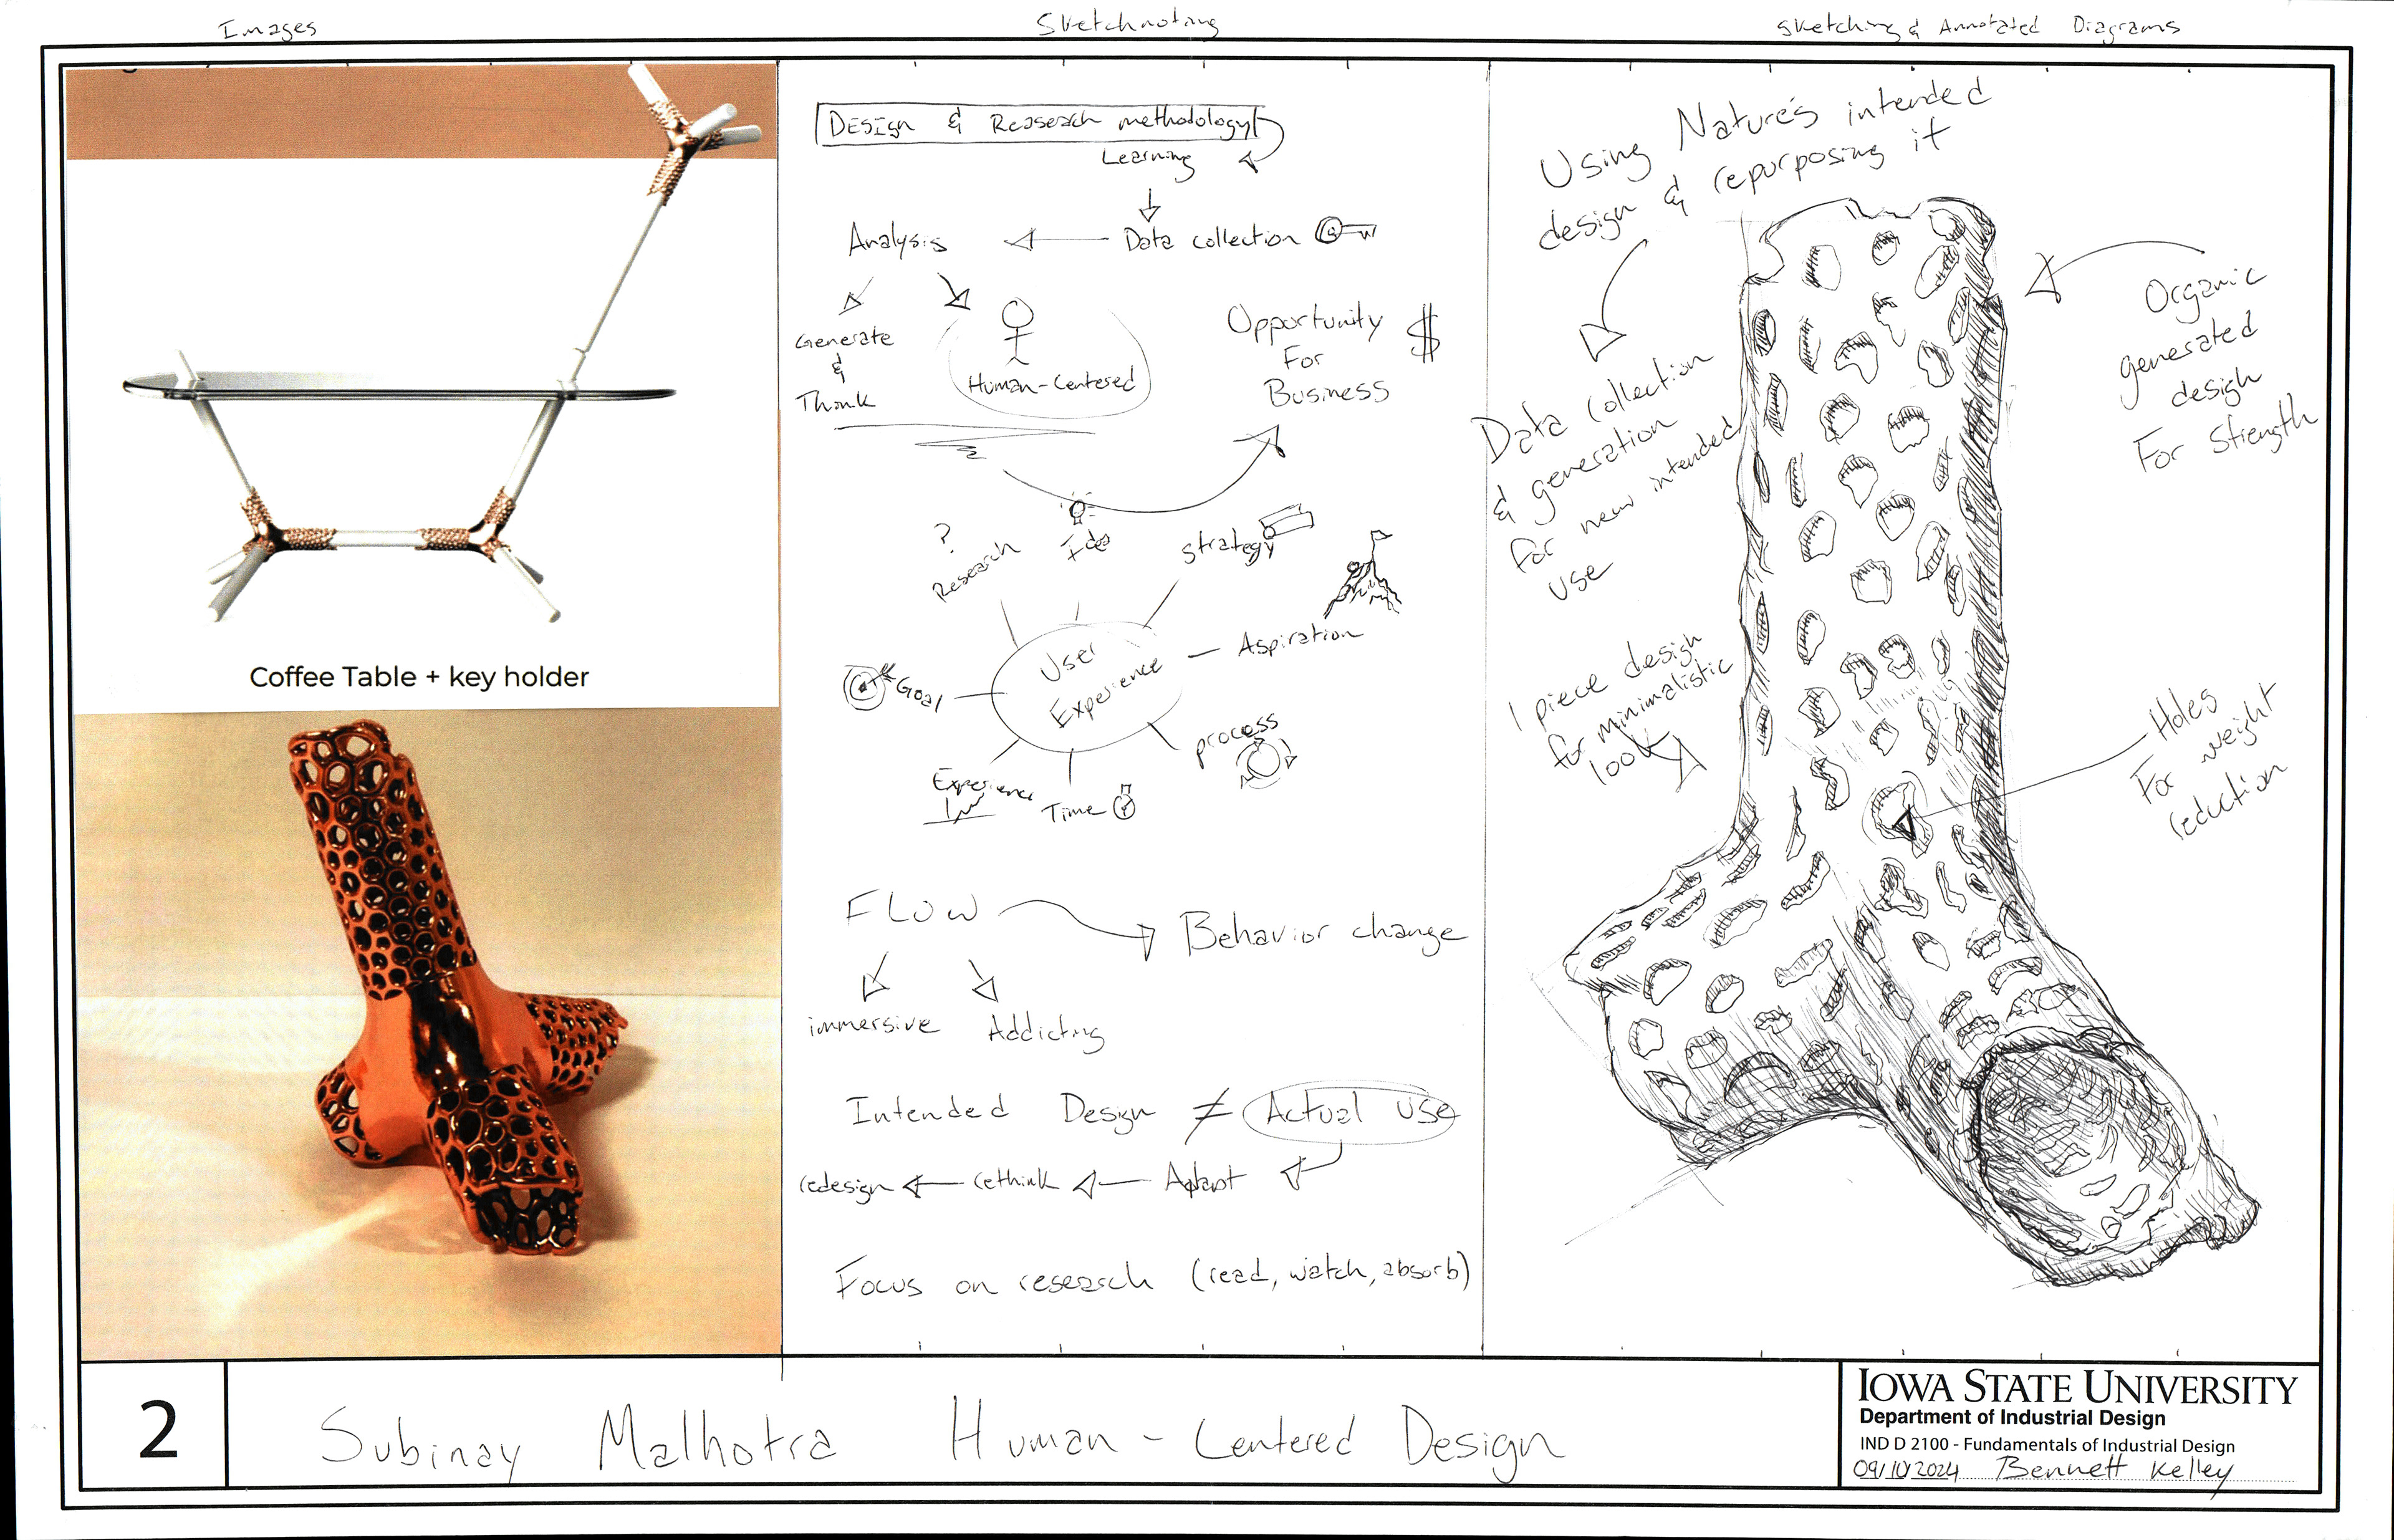 Images
Sketchnoting
Sketching & Annotated Diagrams
Coffee Table + key holder
Design & Reasearch methodology
Learning
Data collection
Analysis
Generate
&
Think
Human-Centered
Opportunity
For
Business
$
?
Research
Idea
Strategy
Aspiration
User
Experience
Goal
process
Experience
Time
FLOW
Behavior change
immersive
Addicting
Intended Design ≠ Actual use
redesign
rethink
Adapt
Focus on research (read, watch, absorb)
Using Nature's intended
design & repurposing it
Data collection
& generation
for new intended
use
Organic
generated
design
For Strength
1 piece design
for minimalistic
look
Holes
For weight
reduction
2
Subinay Malhotra Human-Centered Design
IOWA STATE UNIVERSITY
Department of Industrial Design
IND D 2100 - Fundamentals of Industrial Design
09/10/2024 Bennett Kelley